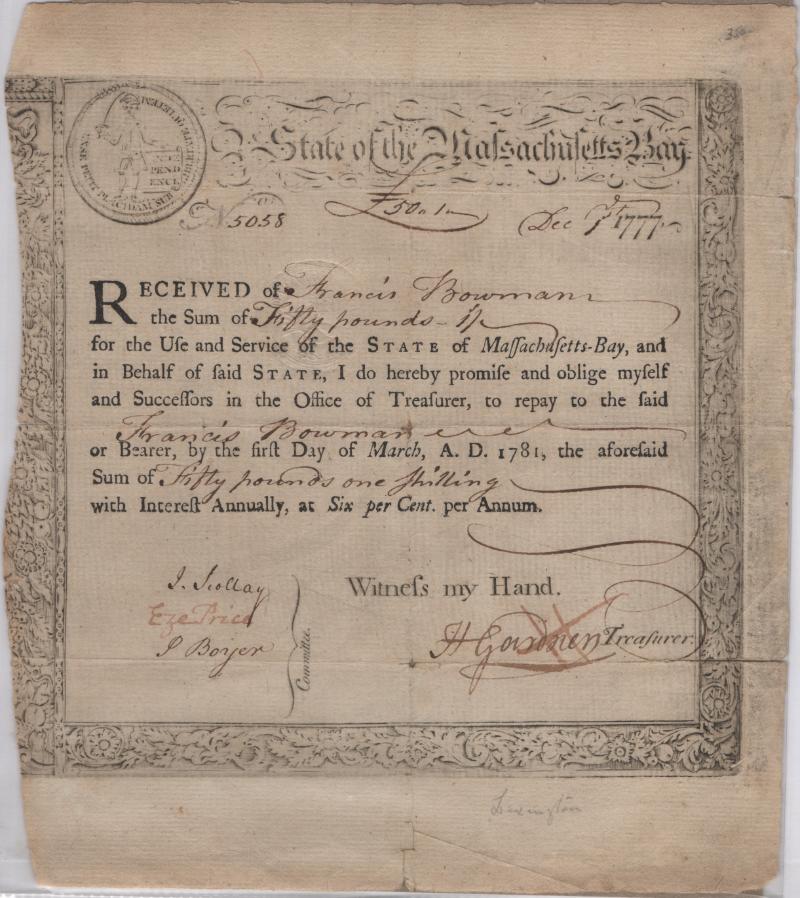 ENSE PETIT PLACIDAM SUB LIBERTATE QUIETEM
INDE
PEND
ENCE
State of the Massachusetts Bay.
No 5058 £50 " 1 " Dec 1st 1777
RECEIVED of Francis Bowman
the Sum of Fifty pounds - 1/
for the Uſe and Service of the STATE of Maſſachuſetts-Bay, and
in Behalf of ſaid STATE, I do hereby promiſe and oblige myſelf
and Succeſſors in the Office of Treaſurer, to repay to the ſaid
Francis Bowman
or Bearer, by the firſt Day of March, A. D. 1781, the aforeſaid
Sum of Fifty pounds one shilling
with Intereſt Annually, at Six per Cent. per Annum.
Witneſs my Hand.
J. Scollay
Eze Price
P Boyer
Committee.
H Gardner Treaſurer.
Lexington